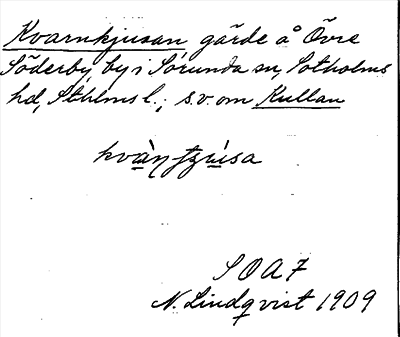 Kvarnkjusan gärde å Övre
Söderby, by i Sorunda sn, Sotholms
hd, Sthlms l.; s.v. om Kullan
SOAF
N. Lindqvist 1909